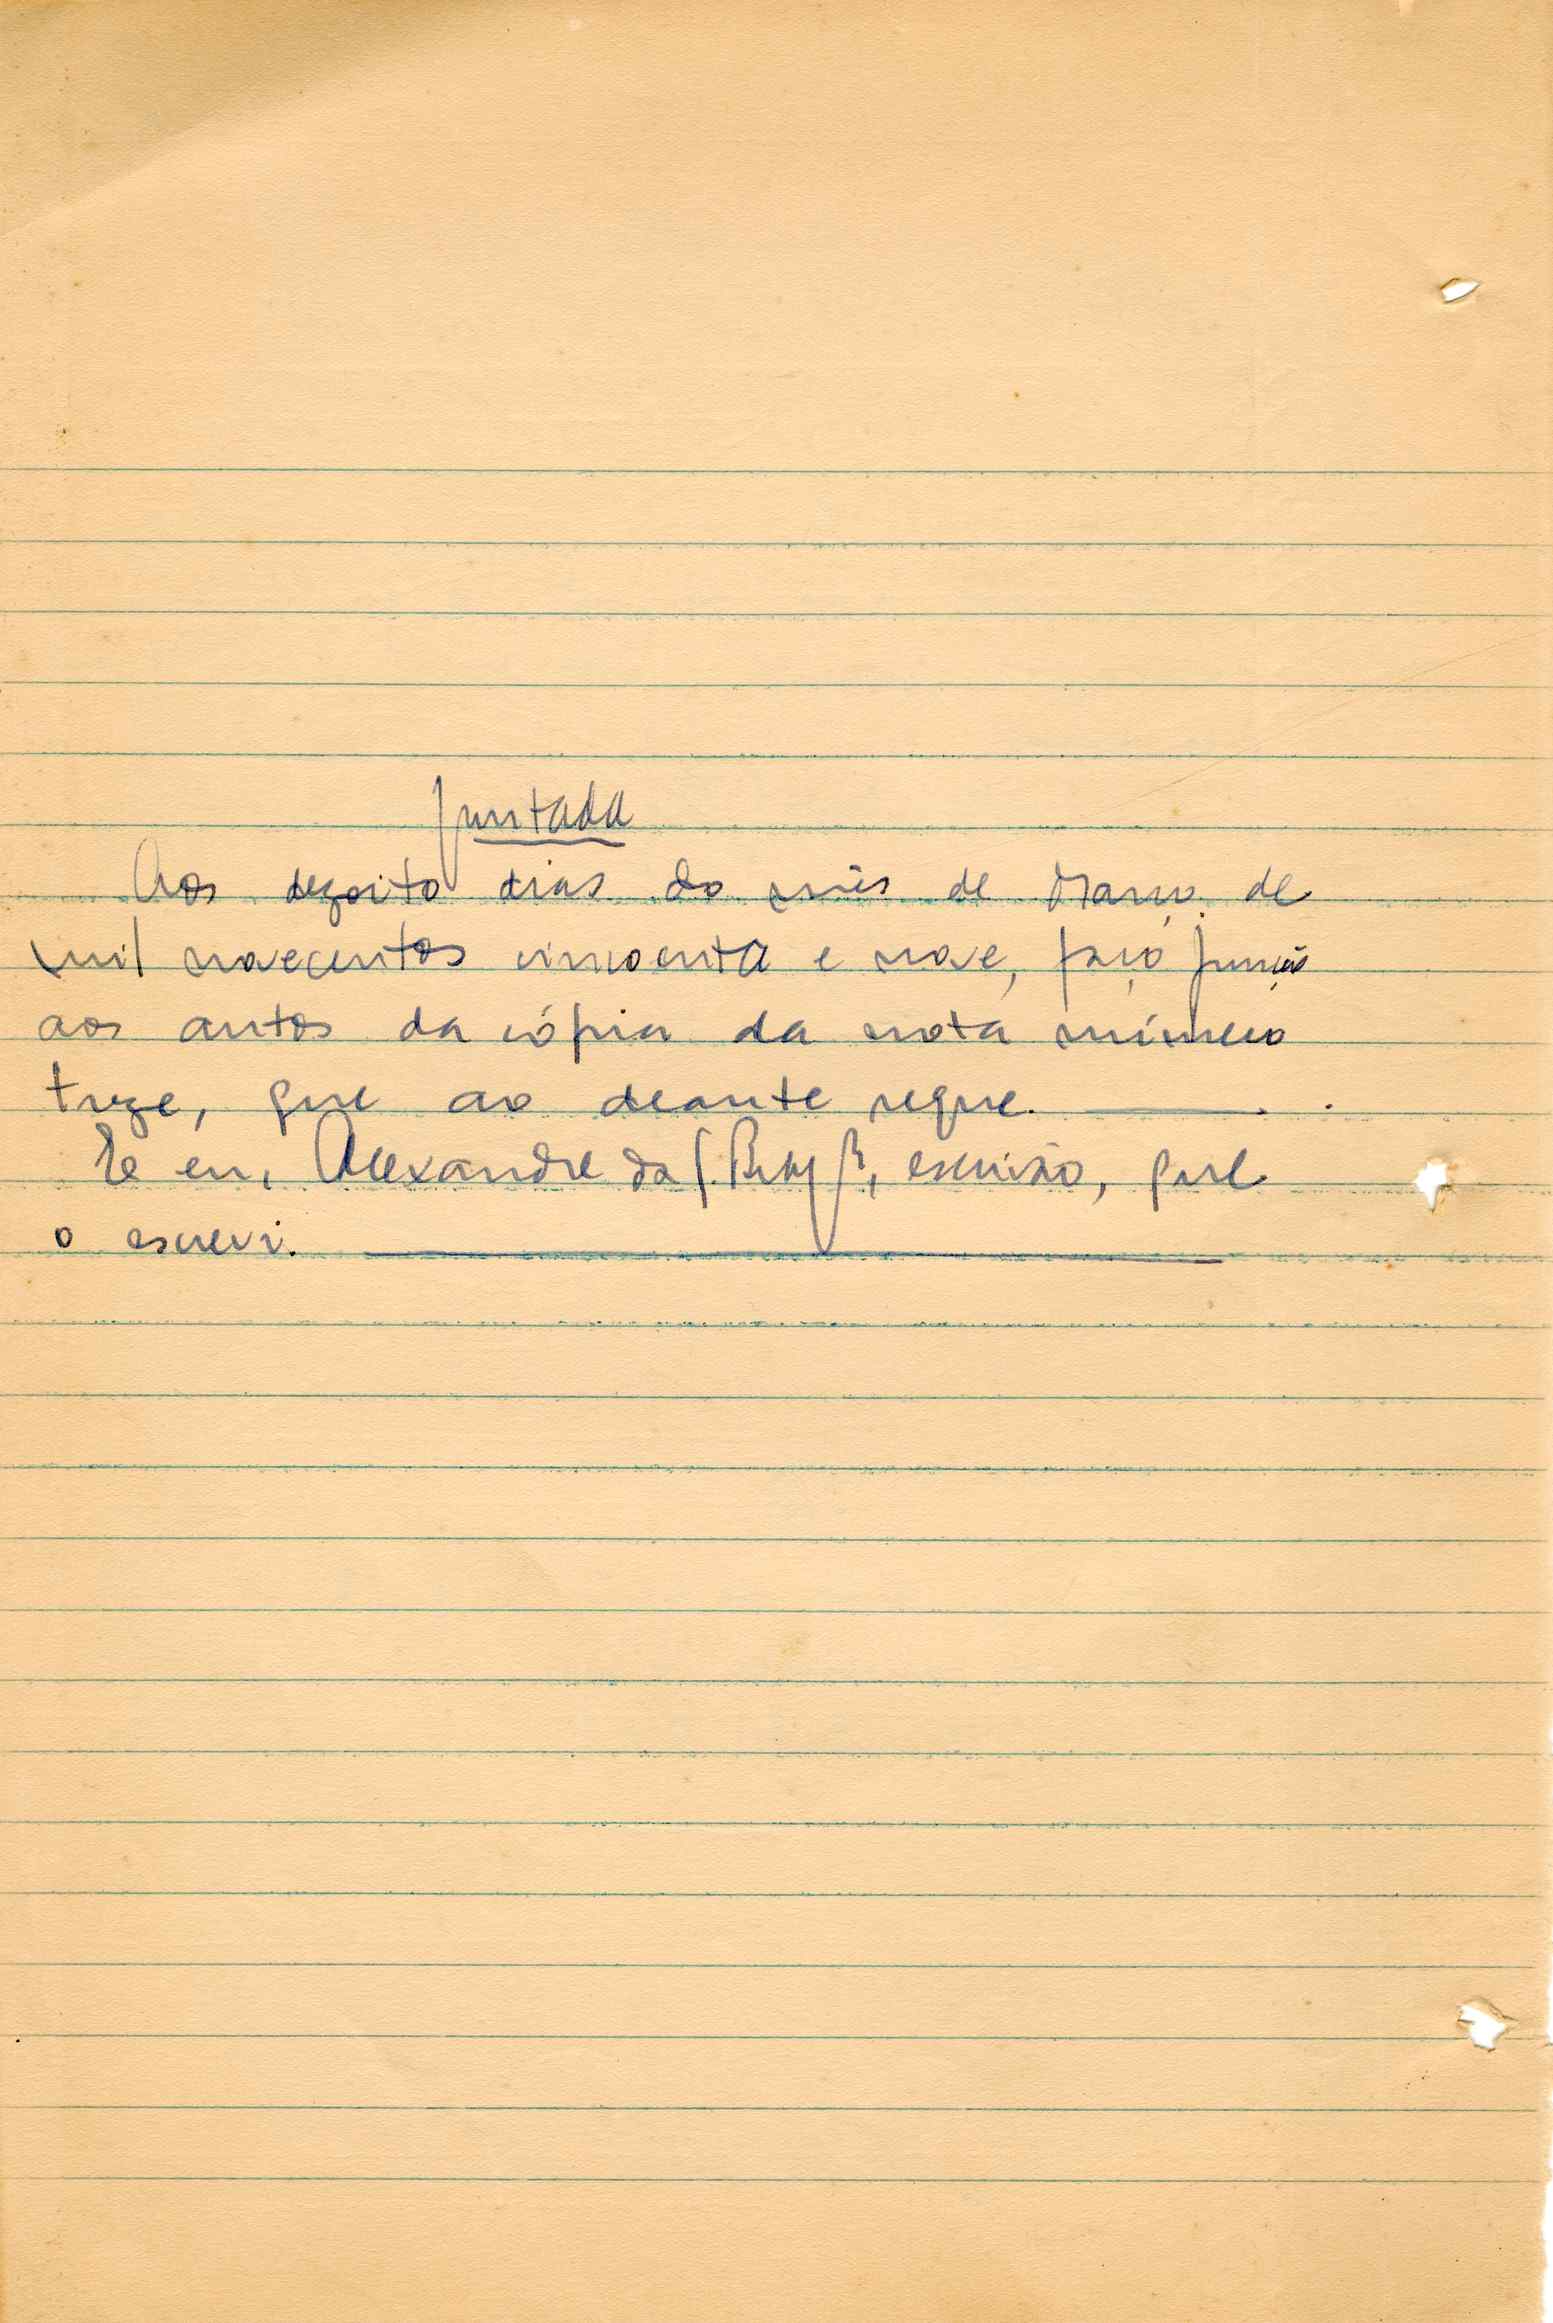 Juntada
Aos dezoito dias do mês de Março de
mil novecentos cincoenta e nove, faço junção
aos autos da cópia da nota número
treze, que ao deante segue.
E eu, Alexandre da escrivão, que
o escrevi.